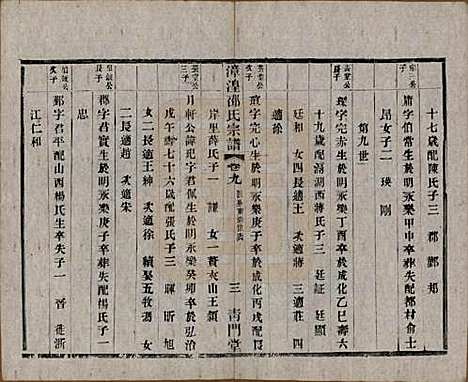 十七歲配陳氏子三 郡 酆 郟
第三公次子
庸字伯常生於明永樂甲申卒葬失配都村俞士
昂女子二 瑛 剛
第九世
高堂公長子
理字完赤生於明永樂丁酉卒於成化乙巳壽六
十九歲配滆湖西蔣氏子三 廷証 廷顯
廷和 女四長適王 次適蔣 三適莊 四
適徐
範字完心生於明永樂 卒於成化丙戌配長
漳湟邵氏宗譜
卷九
三 青門堂
岸里薛氏子一 謙 女一贅夾山王鎮
月軒公諱玘字 生於明永樂癸卯卒於弘治
戊午壽七十六歲配張氏子三 暉 昕 旭
女二長適王紳 次適徐 續娶五牧馮 女
二長適趙 次適宋
郡字君實生於明永樂庚子卒葬失配楊氏子一
忠
鄴字君平配山西楊氏生卒失子一 晉 徙浙
江仁和